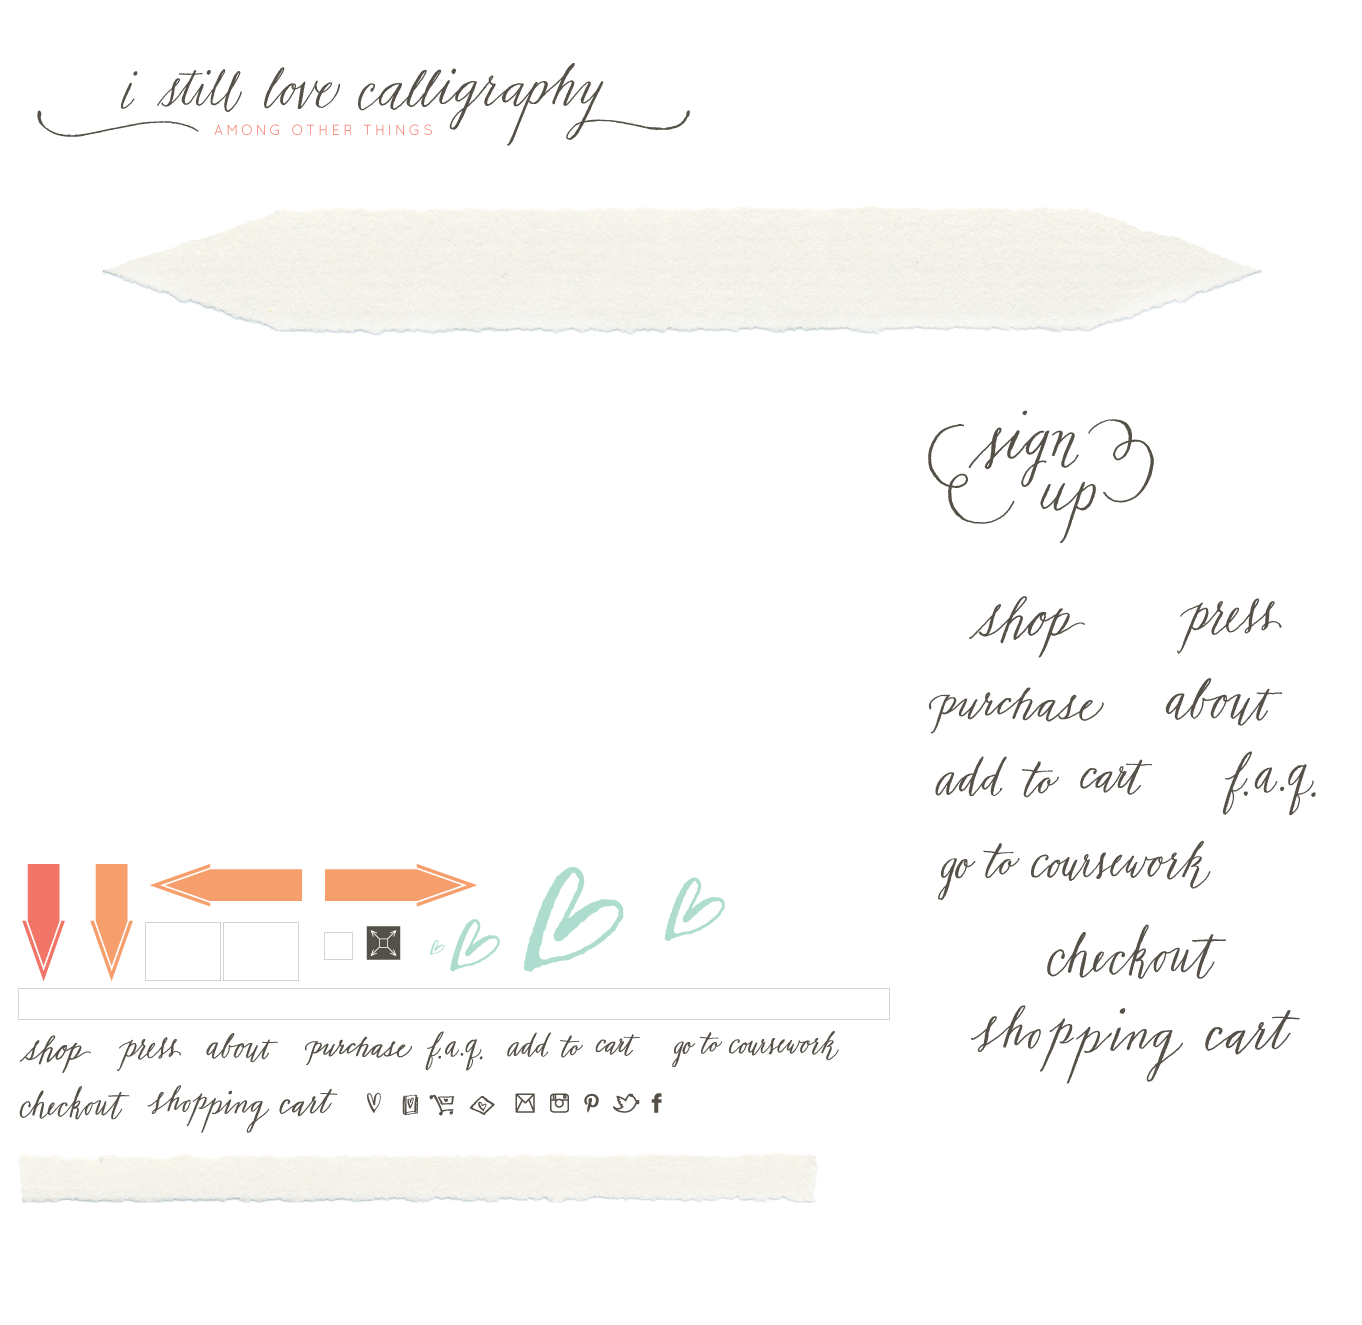 i still love calligraphy
AMONG OTHER THINGS
sign
up
shop press
purchase about
add to cart f.a.q.
go to coursework
checkout
shopping cart
shop press about purchase f.a.q. add to cart go to coursework
checkout shopping cart